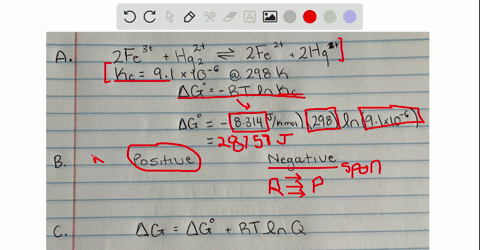 A. 2Fe³⁺ + Hg₂²⁺ ⇌ 2Fe²⁺ + 2Hg²⁺
[Kc = 9.1 × 10⁻⁶ @ 298 K]
ΔG° = -RT ln Kc
ΔG° = -(8.314 J/K·mol)(298) ln (9.1×10⁻⁶)
= 28757 J
B. Positive Negative
R ⇉ P spon
C. ΔG = ΔG° + RT ln Q